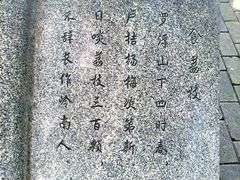 食荔枝
罗浮山下四时春
卢桔杨梅次第新
日啖荔枝三百颗
不辞长作岭南人